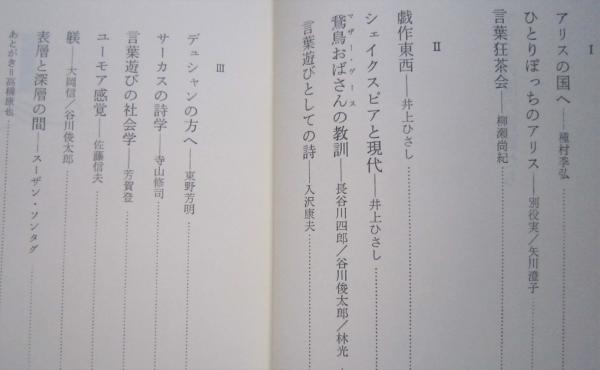 I
アリスの国へ——種村季弘
ひとりぼっちのアリス——別役実／矢川澄子
言葉狂茶会——柳瀬尚紀
II
戯作東西——井上ひさし
シェイクスピアと現代——井上ひさし
鵞鳥おばさんの教訓——長谷川四郎／谷川俊太郎／林光
マザー・グース
言葉遊びとしての詩——入沢康夫
III
デュシャンの方へ——東野芳明
サーカスの詩学——寺山修司
言葉遊びの社会学——芳賀登
ユーモア感覚——佐藤信夫
躾——大岡信／谷川俊太郎
表層と深層の間——スーザン・ソンタグ
あとがき＝高橋康也